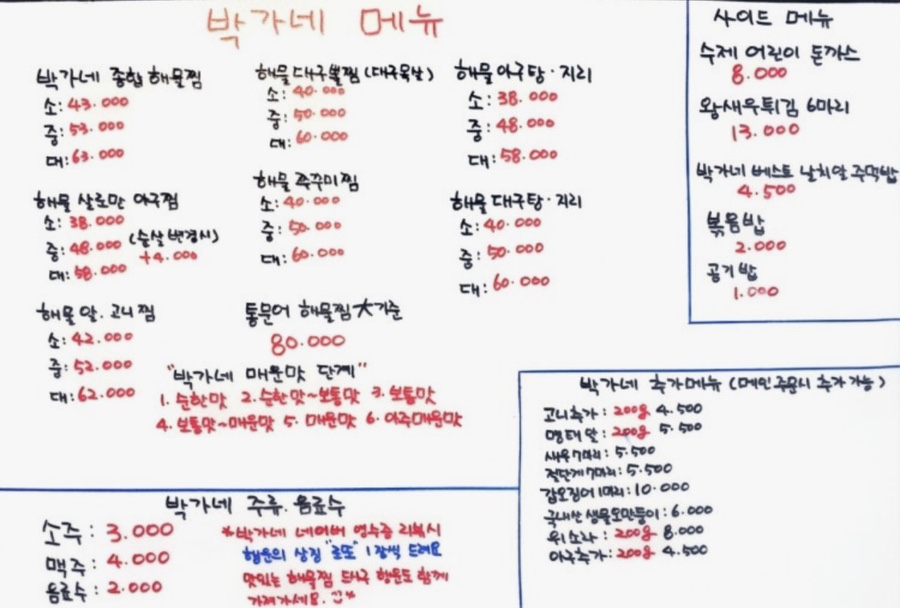 박가네 메뉴
박가네 종합해물찜
소: 43.000
중: 53.000
대: 63.000
해물 살로만 아구찜
소: 38.000
중: 48.000 (순살변경시)
+4.000
대: 58.000
해물 알.고니찜
소: 42.000
중: 52.000
대: 62.000
해물대구뽈찜(대구목살)
소: 40.000
중: 50.000
대: 60.000
해물 쭈꾸미찜
소: 40.000
중: 50.000
대: 60.000
통문어 해물찜 大기준
80.000
해물아구탕·지리
소: 38.000
중: 48.000
대: 58.000
해물대구탕·지리
소: 40.000
중: 50.000
대: 60.000
"박가네 매운맛 단계"
1. 순한맛 2. 순한맛~보통맛 3. 보통맛
4. 보통맛~매운맛 5. 매운맛 6. 아주매운맛
사이드 메뉴
수제 어린이 돈까스
8.000
왕새우튀김 6마리
13.000
박가네 베스트 날치알 주먹밥
4.500
볶음밥
2.000
공기밥
1.000
박가네 추가메뉴 (메인주문시 추가가능)
고니추가: 200g 4.500
명태알: 200g 5.500
새우7마리: 5.500
절단게7마리: 5.500
갑오징어1마리: 10.000
국내산 생물오만둥이: 6.000
위소라: 200g 8.000
아구추가: 200g 4.500
박가네 주류.음료수
소주: 3.000
맥주: 4.000
음료수: 2.000
*박가네 네이버 영수증 리뷰시
행운의 상징 "로또" 1장씩 드려요
맛있는 해물찜 드시구 행운도 함께
가져가세요. ^^*